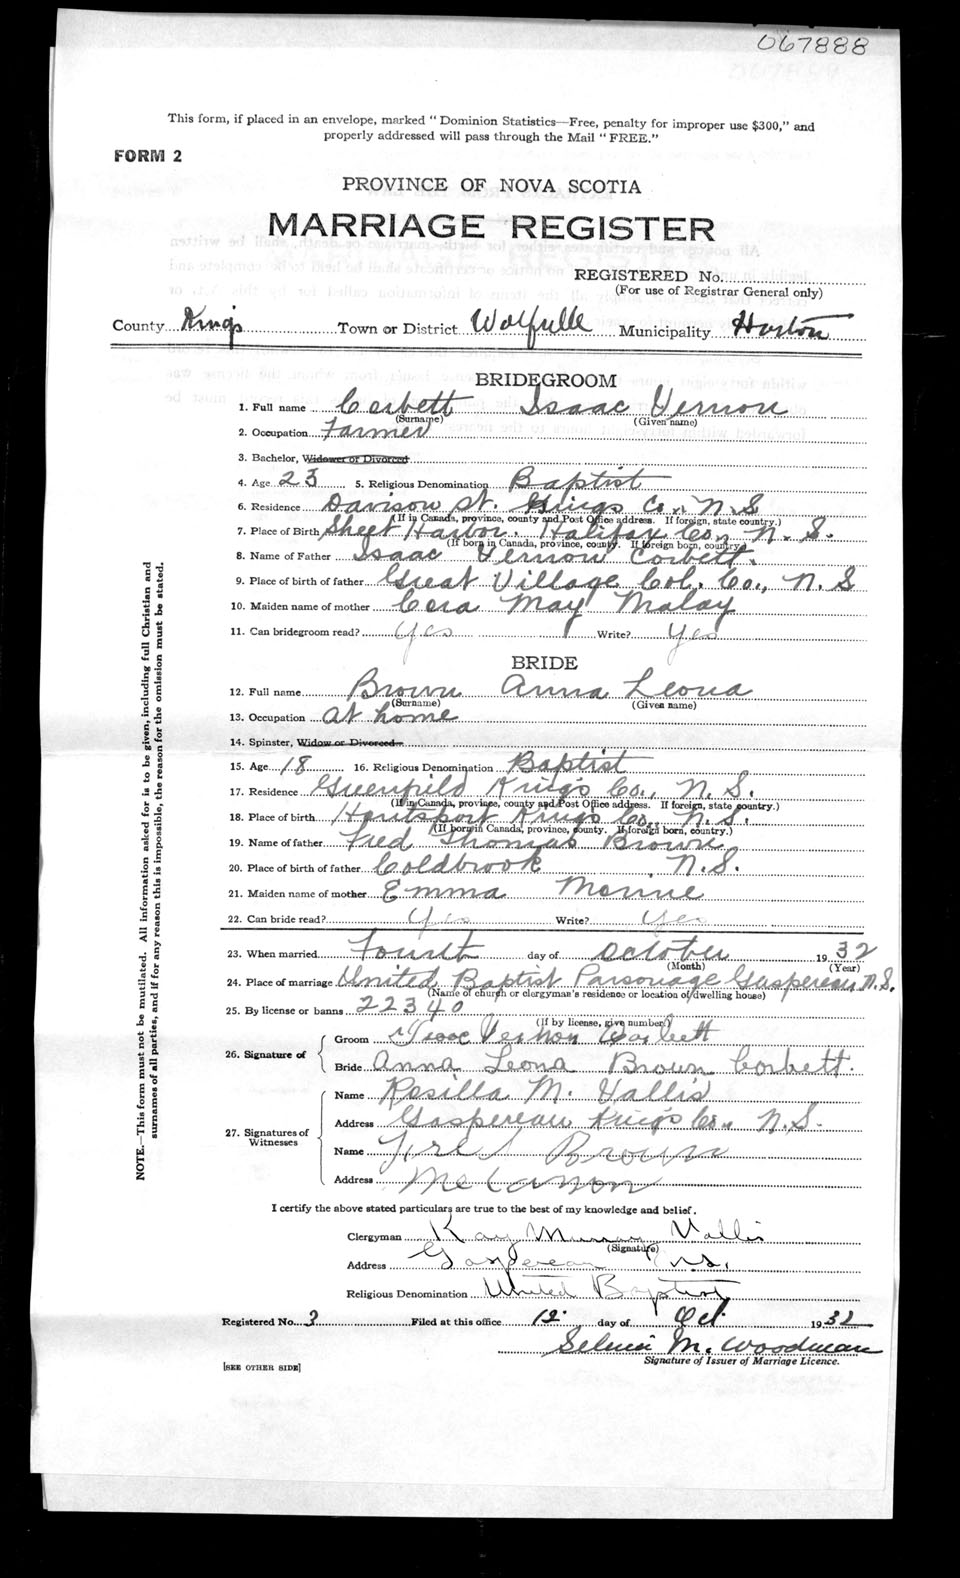 067888
This form, if placed in an envelope, marked " Dominion Statistics—Free, penalty for improper use $300," and
properly addressed will pass through the Mail " FREE."
FORM 2
PROVINCE OF NOVA SCOTIA
MARRIAGE REGISTER
REGISTERED No.
(For use of Registrar General only)
County Kings Town or District Wolfville Municipality Horton
BRIDEGROOM
1. Full name Corbett Isaac Vernon
(Surname) (Given name)
2. Occupation Farmer
3. Bachelor, Widower or Divorced
4. Age 23 5. Religious Denomination Baptist
6. Residence Davison St. Kings Co. N.S
(If in Canada, province, county and Post Office address. If foreign, state country.)
7. Place of Birth Sheet Harbor. Halifax Co., N. S.
(If born in Canada, province, county. If foreign born, country.)
8. Name of Father Isaac Vernon Corbett.
9. Place of birth of father Great Village Col. Co., N. S
10. Maiden name of mother Cora May Malay
11. Can bridegroom read? Yes Write? Yes
BRIDE
12. Full name Brown Anna Leona
(Surname) (Given name)
13. Occupation at home
14. Spinster, Widow or Divorced
15. Age 18 16. Religious Denomination Baptist
17. Residence Greenfield Kings Co., N. S.
(If in Canada, province, county and Post Office address. If foreign, state country.)
18. Place of birth Hantsport Kings Co., N. S.
(If born in Canada, province, county. If foreign born, country.)
19. Name of father Fred Thomas Brown
20. Place of birth of father Coldbrook N.S.
21. Maiden name of mother Emma
22. Can bride read? Yes Write? Yes
23. When married Fourth day of October 1932
(Month) (Year)
24. Place of marriage United Baptist Parsonage Gaspereau N.S.
(Name of church or clergyman's residence or location of dwelling house)
25. By license or banns 22340
(If by license, give number)
26. Signature of
Groom Isaac Vernon Corbett
Bride Anna Leona Brown Corbett.
27. Signatures of
Witnesses
Name Rosilla M. Vallis
Address Gaspereau Kings Co., N.S.
Name Fred Brown
Address
I certify the above stated particulars are true to the best of my knowledge and belief.
Clergyman Kay Murray Vallis
(Signature)
Address Gaspereau N.S.
Religious Denomination United Baptist
Registered No. 3 Filed at this office 12 day of Oct. 1932
M. Woodman
Signature of Issuer of Marriage Licence.
[SEE OTHER SIDE]
NOTE.—This form must not be mutilated. All information asked for is to be given, including full Christian and
surnames of all parties, and if for any reason this is impossible, the reason for the omission must be stated.